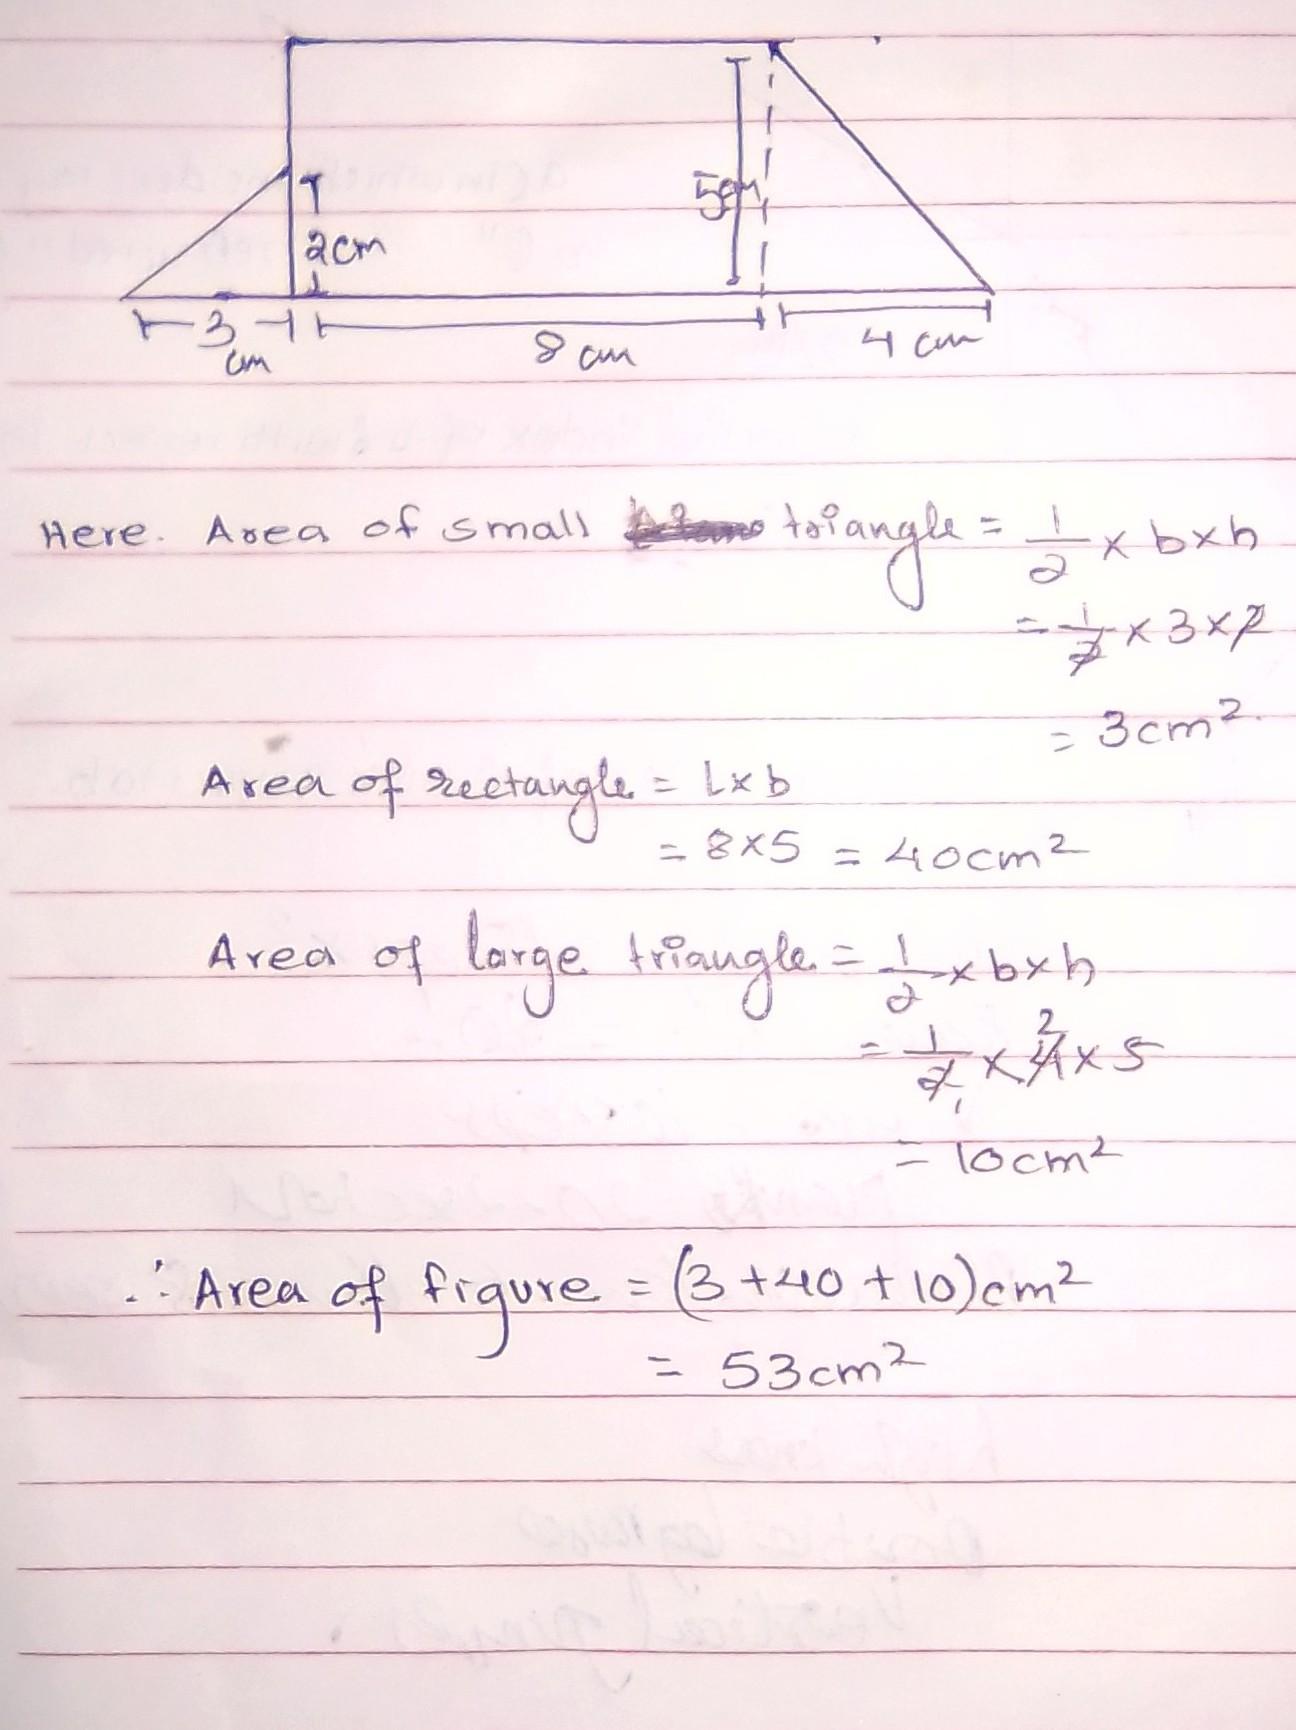 5cm
2cm
3 cm
8 cm
4 cm
Here. Area of small triangle = 1/2 × b×h
= 1/2 × 3×2
= 3cm².
Area of rectangle = L×b
= 8×5 = 40cm²
Area of large triangle = 1/2 × b×h
= 1/2 1 × 4 2 × 5
= 10cm²
∴ Area of figure = (3+40+10)cm²
= 53cm²